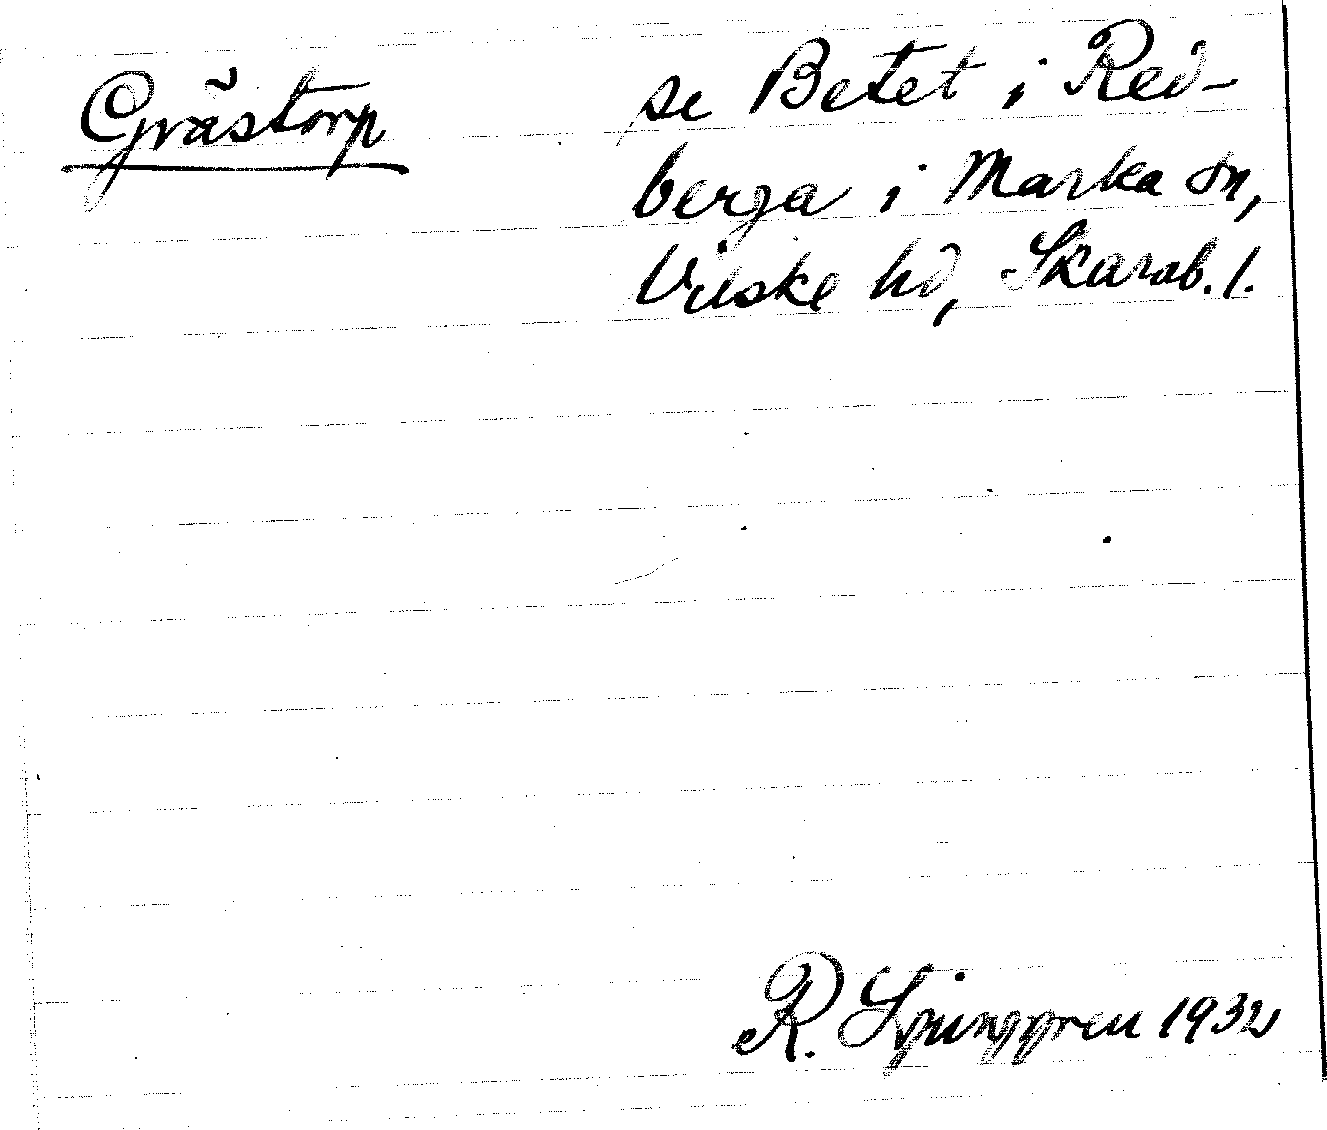 Grästorp
se Betet i Red-
berga i Marka sn,
Vilske hd, Skarab. l.
R. Ljunggren 1932